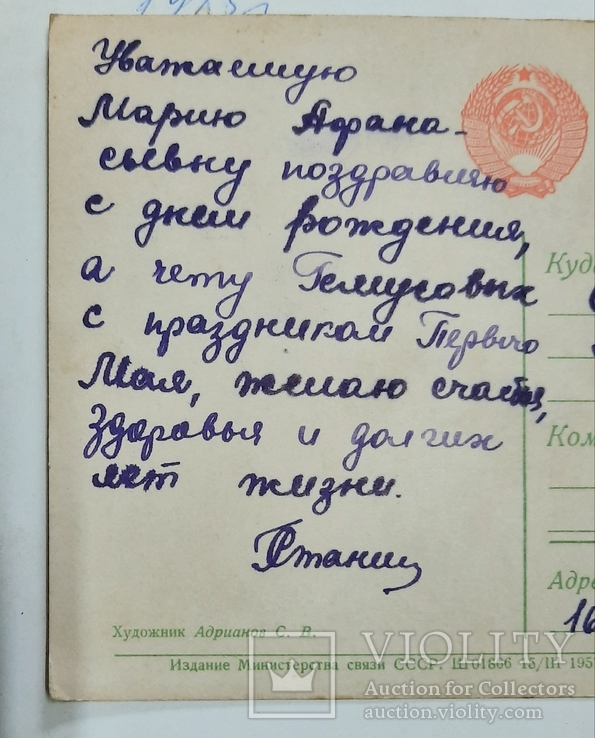 Уважаемую
Марию Афана-
сьевну поздравляю
с днем рождения,
а чету Гемусовых
с праздником Первого
Мая, желаю счастья,
здоровья и долгих
лет жизни.
Куда
Ком
Адре
16
Художник Адрианов С. В.
Издание Министерства связи СССР. Ш01666 15/III-195
VIOLITY
Auction for Collectors
auction.violity.com